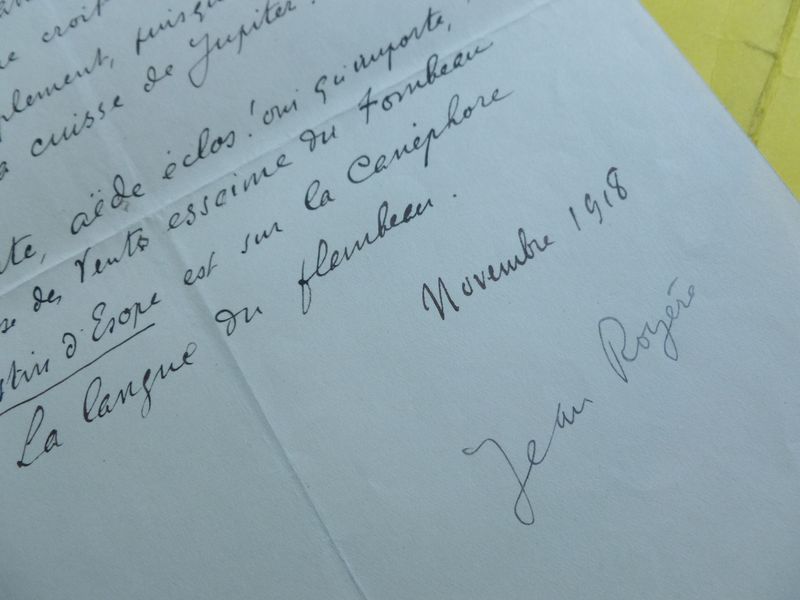 croit
plement, puisqu
cuisse de Jupiter.
te, aëde éclos! oui qu'importe,
se des Vents essaime du Tombeau
stin d'Esope est sur la Canéphore
La langue du flambeau.
Novembre 1918
Jean Royère